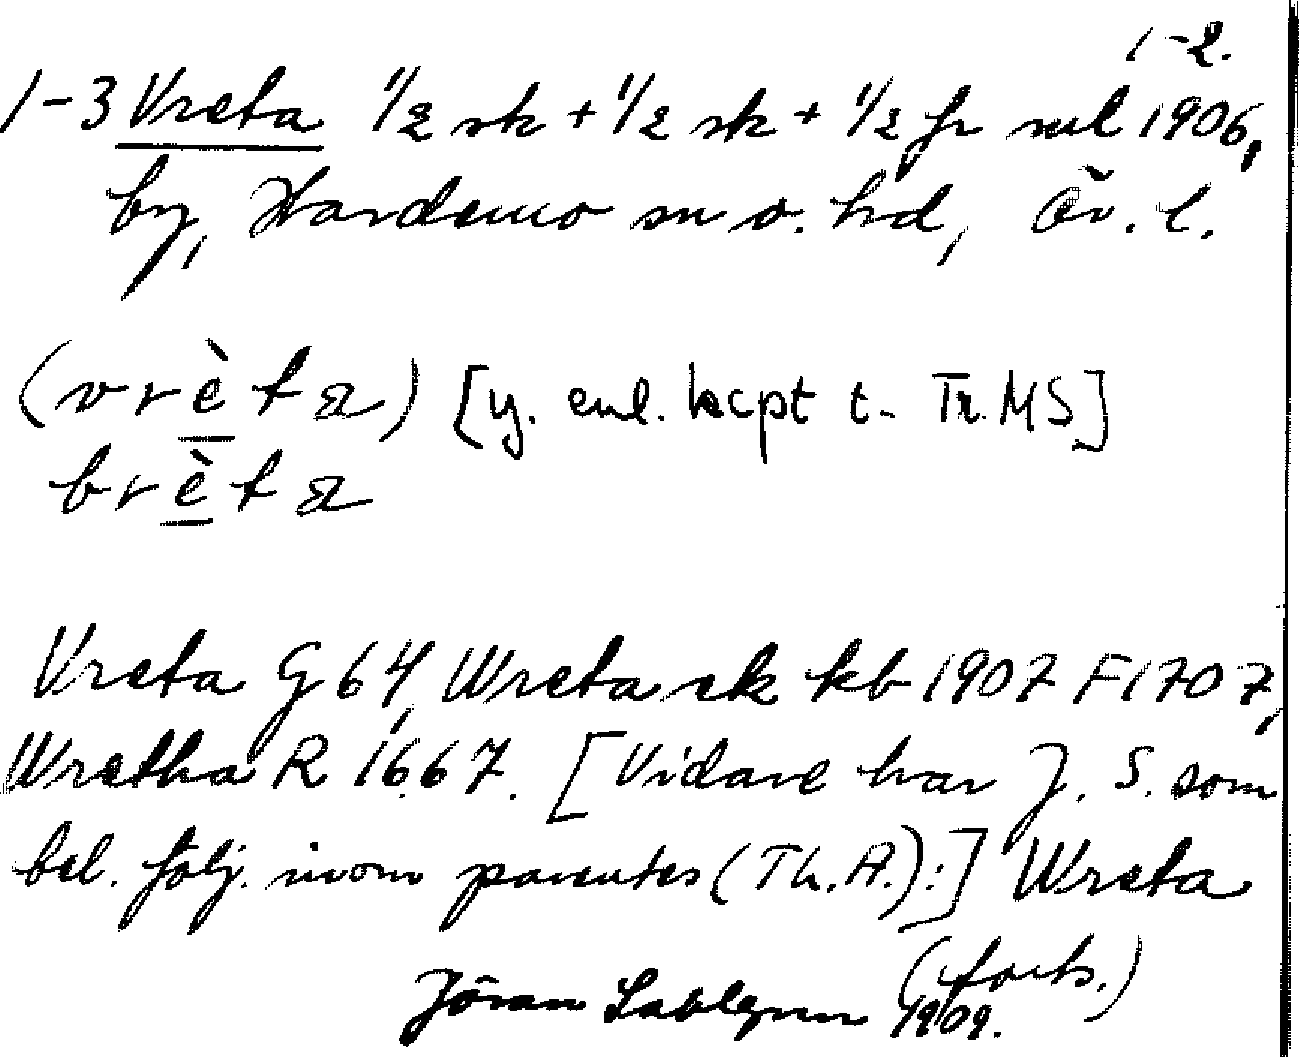 1-2.
1-3 Vreta 1/2 sk + 1/2 sk + 1/2 fr rul 1906,
by, Hardemo sn o. hd, Ör. l.
(vrètа)  [y. enl. kcpt t. Tr. MS]
brètа
Vreta G 64, Wreta sk kb 1907 F1707,
Wretha R 1667. [Vidare har J. S. som
bel. följ. inom parentes (Th.A.):] Wreta
(forts.)
Jöran Sahlgren 1909.